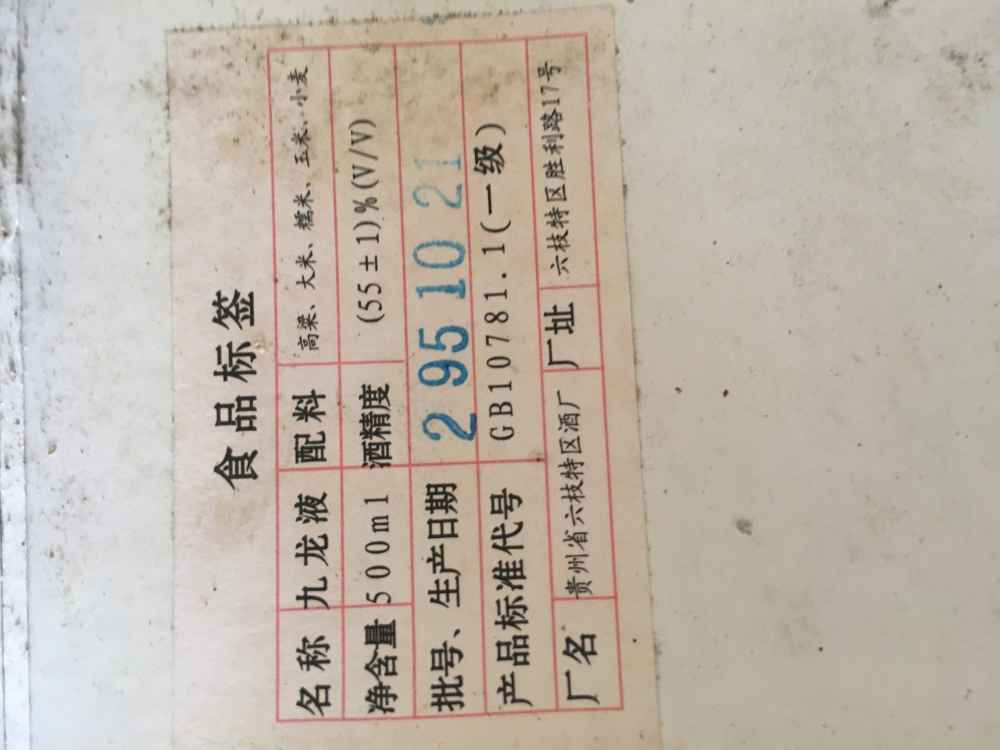 食品标签
名称 九龙液 配料 高粱、大米、糯米、玉米、小麦
净含量 500ml 酒精度 (55±1)%(V/V)
批号、生产日期 2 95 10 21
产品标准代号 GB10781.1(一级)
厂名 贵州省六枝特区酒厂 厂址 六枝特区胜利路17号